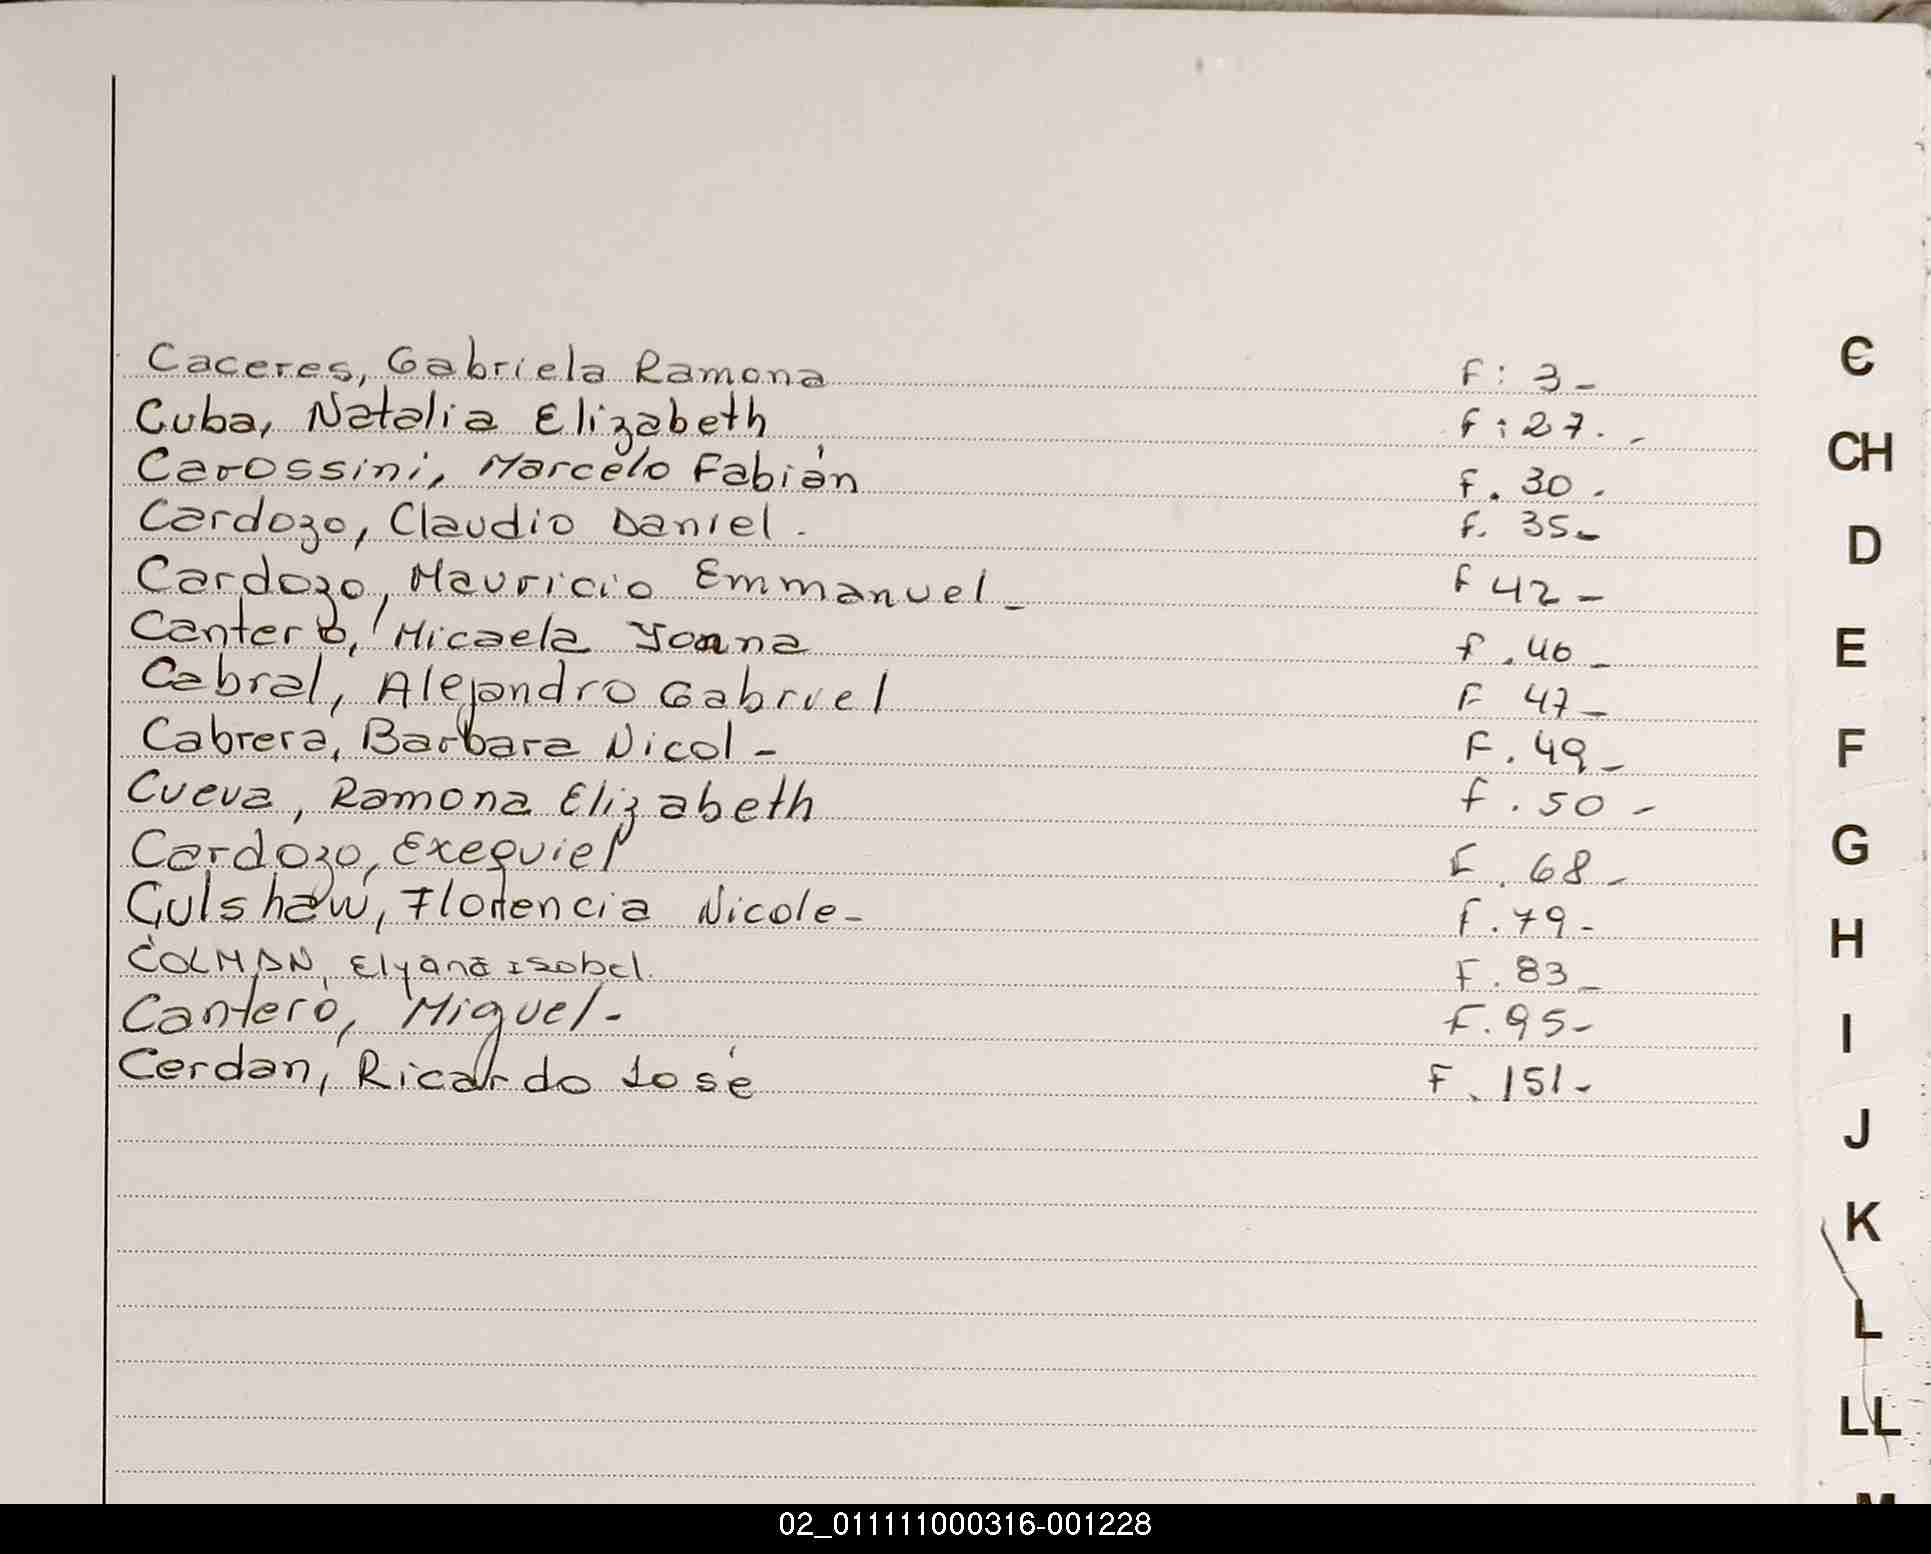 Caceres, Gabriela Ramona F: 3-
Cuba, Natalia Elizabeth F: 27. -
Carossini, Marcelo Fabián F. 30.
Cardozo, Claudio Daniel. F. 35-
Cardozo, Mauricio Emmanuel- F 42-
Cantero, Micaela Yoana F. 46-
Cabral, Alejandro Gabriel F 47-
Cabrera, Barbara Nicol- F. 49-
Cueva, Ramona Elizabeth F. 50-
Cardozo, Exequiel F. 68-
Culshaw, Florencia Nicole- F. 79-
COLMAN, Elyana Isabel. F. 83-
Cantero, Miguel- F. 95-
Cerdan, Ricardo José F. 151-
C
CH
D
E
F
G
H
I
J
K
L
LL
M
02_011111000316-001228